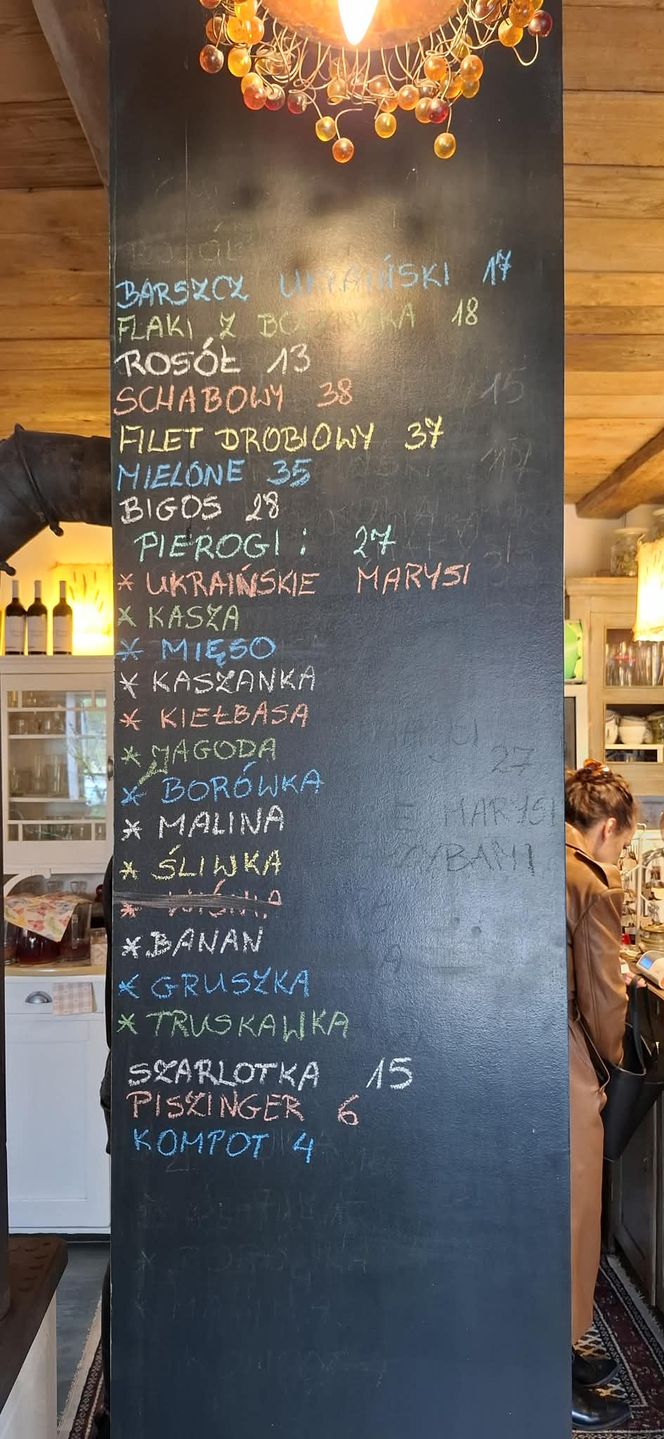 BARSZCZ UKRAIŃSKI 17
FLAKI Z 18
ROSÓŁ 13
SCHABOWY 38
FILET DROBIOWY 37
MIELONE 35
BIGOS 28
PIEROGI : 27
* UKRAIŃSKIE MARYSI
* KASZA
* MIĘSO
* KASZANKA
* KIEŁBASA
* JAGODA
* BORÓWKA
* MALINA
* ŚLIWKA
* WIŚNIA
* BANAN
* GRUSZKA
* TRUSKAWKA
SZARLOTKA 15
PISZINGER 6
KOMPOT 4